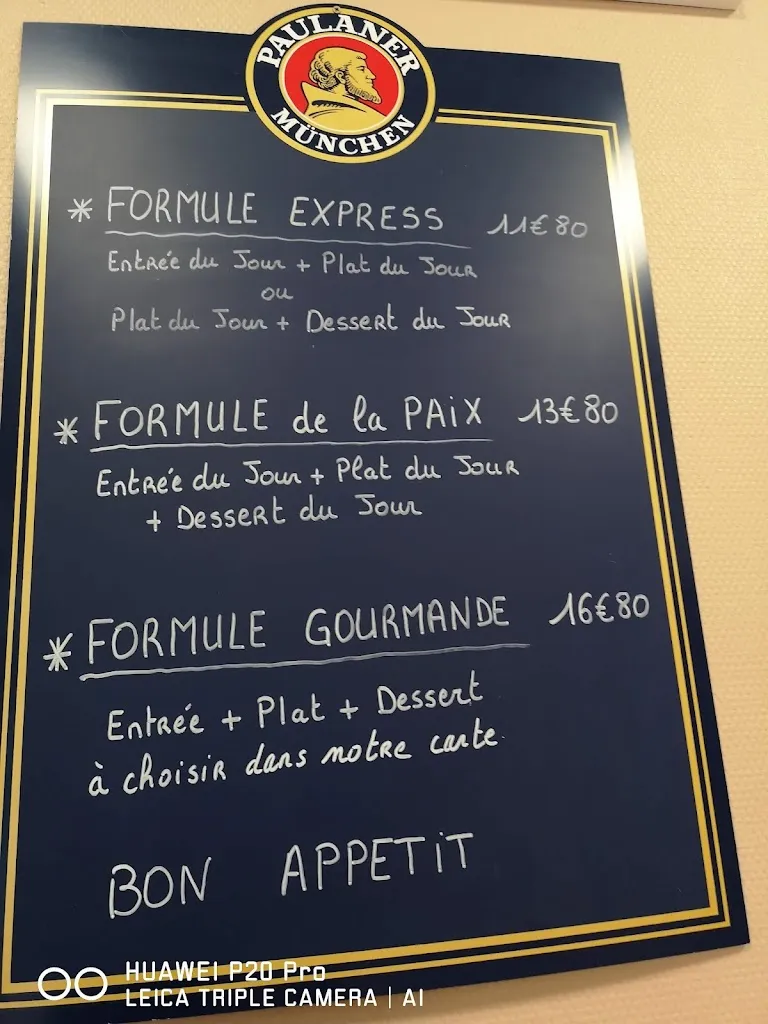 PAULANER
MÜNCHEN
* FORMULE EXPRESS 11€80
Entrée du Jour + Plat du Jour
ou
Plat du Jour + Dessert du Jour
* FORMULE de la PAiX 13€80
Entrée du Jour + Plat du Jour
+ Dessert du Jour
* FORMULE GOURMANDE 16€80
Entrée + Plat + Dessert
à choisir dans notre carte
BON APPETiT
HUAWEI P20 Pro
LEICA TRIPLE CAMERA | AI